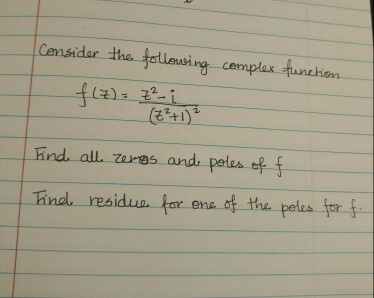 Consider the following complex function
f(z) = z²-i / (z²+1)²
Find all zeros and poles of f
Find residue for one of the poles for f.